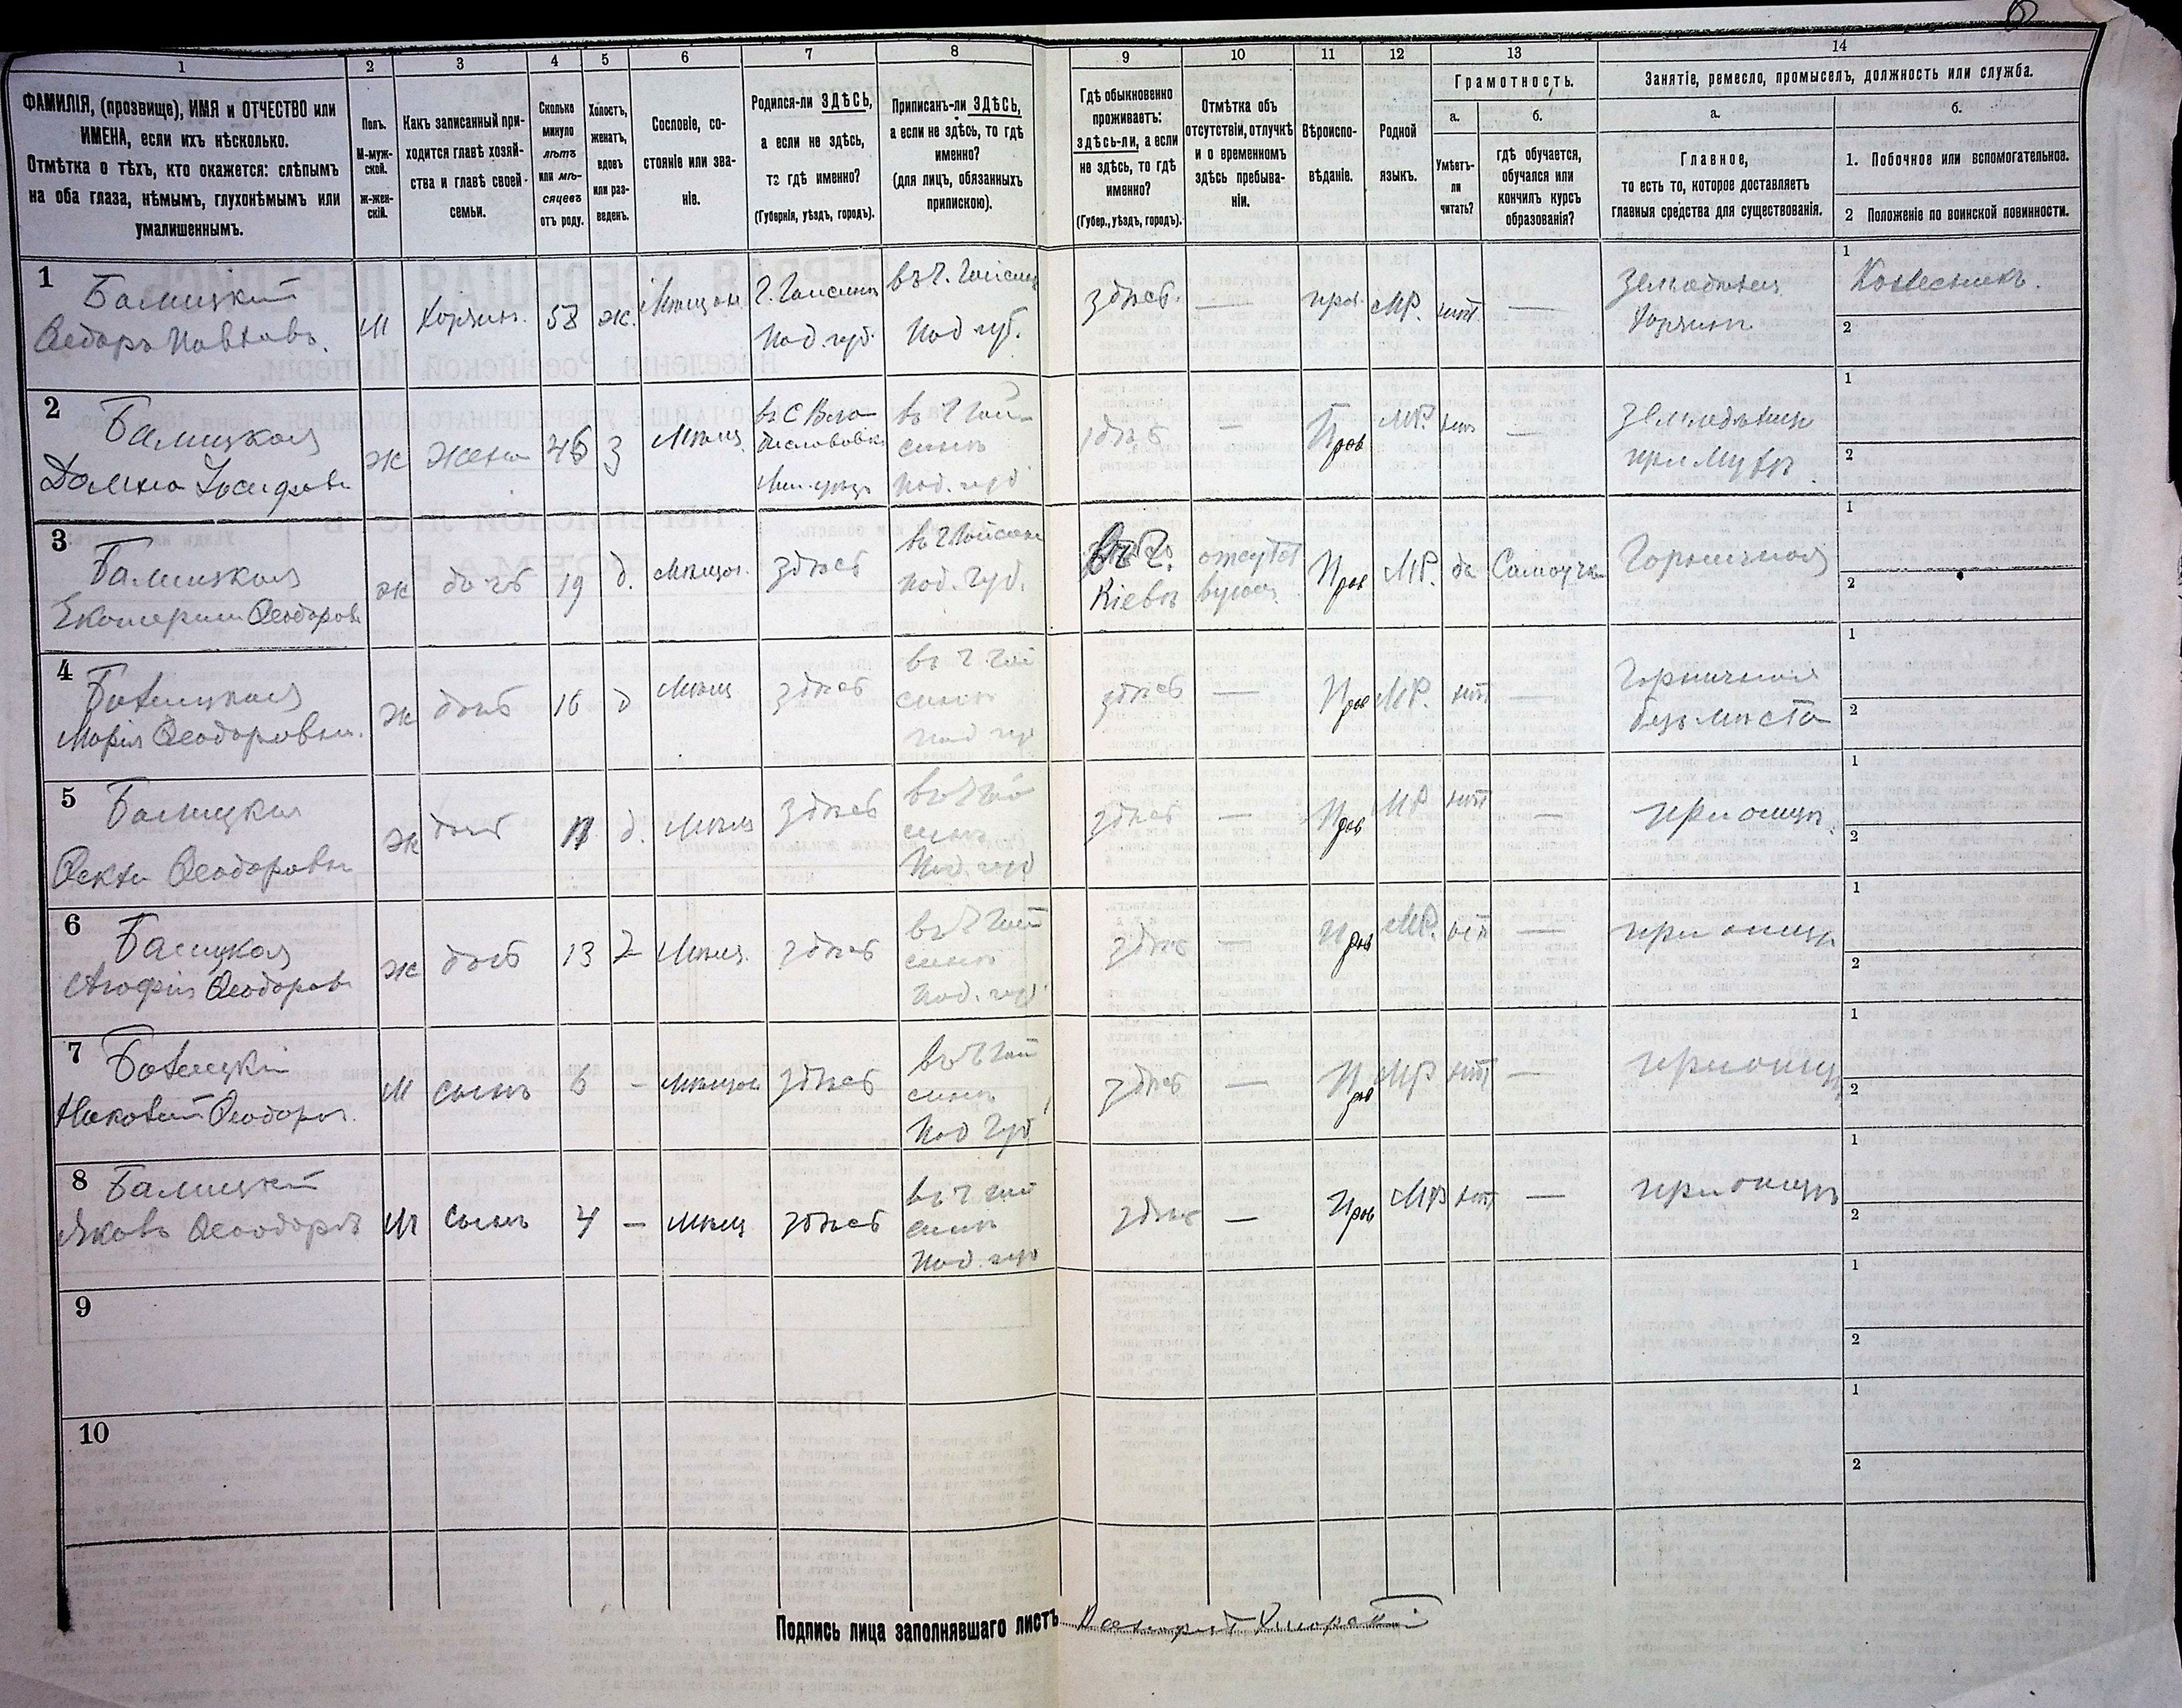 1
2
3
4
5
6
7
8
ФАМИЛІЯ, (прозвище), ИМЯ и ОТЧЕСТВО или
ИМЕНА, если ихъ нѣсколько.
Отмѣтка о тѣхъ, кто окажется: слѣпымъ
на оба глаза, нѣмымъ, глухонѣмымъ или
умалишеннымъ.
Полъ.
М-муж-
ской.
Ж-жен-
скій.
Какъ записанный при-
ходится главѣ хозяй-
ства и главѣ своей
семьи.
Сколько
минуло
лѣтъ
или мѣ-
сяцевъ
отъ роду.
Холостъ,
женатъ,
вдовъ
или раз-
веденъ.
Сословіе, со-
стояніе или зва-
ніе.
Родился-ли ЗДѢСЬ,
а если не здѣсь,
то гдѣ именно?
(Губернія, уѣздъ, городъ).
Приписанъ-ли ЗДѢСЬ,
а если не здѣсь, то гдѣ
именно?
(для лицъ, обязанныхъ
припискою).
9
10
11
12
13
14
Гдѣ обыкновенно
проживаетъ:
здѣсь-ли, а если
не здѣсь, то гдѣ
именно?
(Губер., уѣздъ, городъ).
Отмѣтка объ
отсутствіи, отлучкѣ
и о временномъ
здѣсь пребыва-
ніи.
Вѣроиспо-
вѣданіе.
Родной
языкъ.
Грамотность.
а.
Умѣетъ-
ли
читать?
б.
гдѣ обучается,
обучался или
кончилъ курсъ
образованія?
Занятіе, ремесло, промыселъ, должность или служба.
а.
Главное,
то есть то, которое доставляетъ
главныя средства для существованія.
б.
1. Побочное или вспомогательное.
2 Положеніе по воинской повинности.
1
Балицкій
Ѳедоръ Павловъ.
М
Хозяин.
58
ж.
Мѣщан
Г. Гайсинъ
Под. губ.
въ г. Гайсин
Под губ.
здѣсь.
—
прав.
МР.
нѣт
—
Земледѣлец
Хозяин
1
Колесникъ.
2
2
Балицкая
Домна Іосифов
ж
жена
46
З
Мѣщ.
въ г Гай-
синѣ
Под. губ
здѣсь
—
Прав
МР.
нѣт
—
при мужѣ
1
2
3
Балицкая
Екатерина Ѳеодоров
ж
дочь
19
д.
Мѣщан.
здѣсь
въ г Гайсинѣ
Под. Губ.
въ г.
Кіевѣ
отсутст
вующ.
Прав
МР.
да
Самоучка
Горничная
1
2
4
Балицкая
Марія Ѳеодоровна.
ж
дочь
16
д
Мѣщ
здѣсь
въ г. Гай
синѣ
Под губ
здѣсь
—
Прав
МР.
нѣт
—
Горничная
безъ мѣста
1
2
5
Балицкая
Ѳекла Ѳеодоровна
ж
дочь
д.
Мѣщ
здѣсь
въ г Гай
синѣ
Под. губ
здѣсь
—
Прав
МР
нѣт
—
при отцѣ.
1
2
6
Балицкая
Агафія Ѳеодоров
ж
дочь
13
Мѣщ.
здѣсь
въ г Гай
синѣ
Под. губ
здѣсь
—
Прав
МР.
нѣт
—
при отцѣ
1
2
7
Балицкій
Ѳеодоров.
М
сынъ
6
–
Мѣщан
здѣсь
въ г Гай
синѣ
Под Губ
здѣсь
—
Прав
МР
нѣт
—
при отцѣ
1
2
8
Балицкій
Яковъ Ѳеодоровъ
М
сынъ
4
—
Мѣщ
здѣсь
въ г Гай
синѣ
Под. губ
здѣсь
—
Прав
МР
нѣт
—
при отцѣ
1
2
9
1
2
10
1
2
Подпись лица заполнявшаго листъ